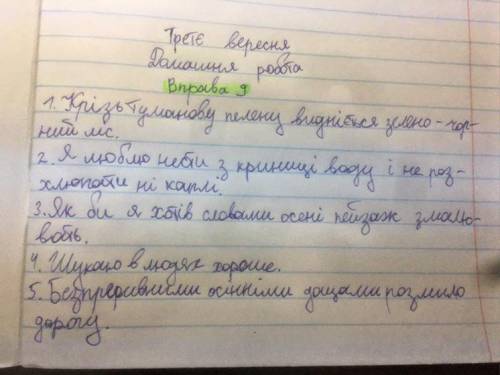 Третє вересня
Домашня робота
Вправа 9
1. Крізь туманову пелену видніється зелено-чор-
ний ліс.
2. Я люблю нести з криниці воду і не роз-
хлюпати ні каплі.
3. Як би я хотів словами осені пейзаж змалю-
вать.
4. Шукаю в людях хороше.
5. Безпреривними осінніми дощами розмило
дорогу.